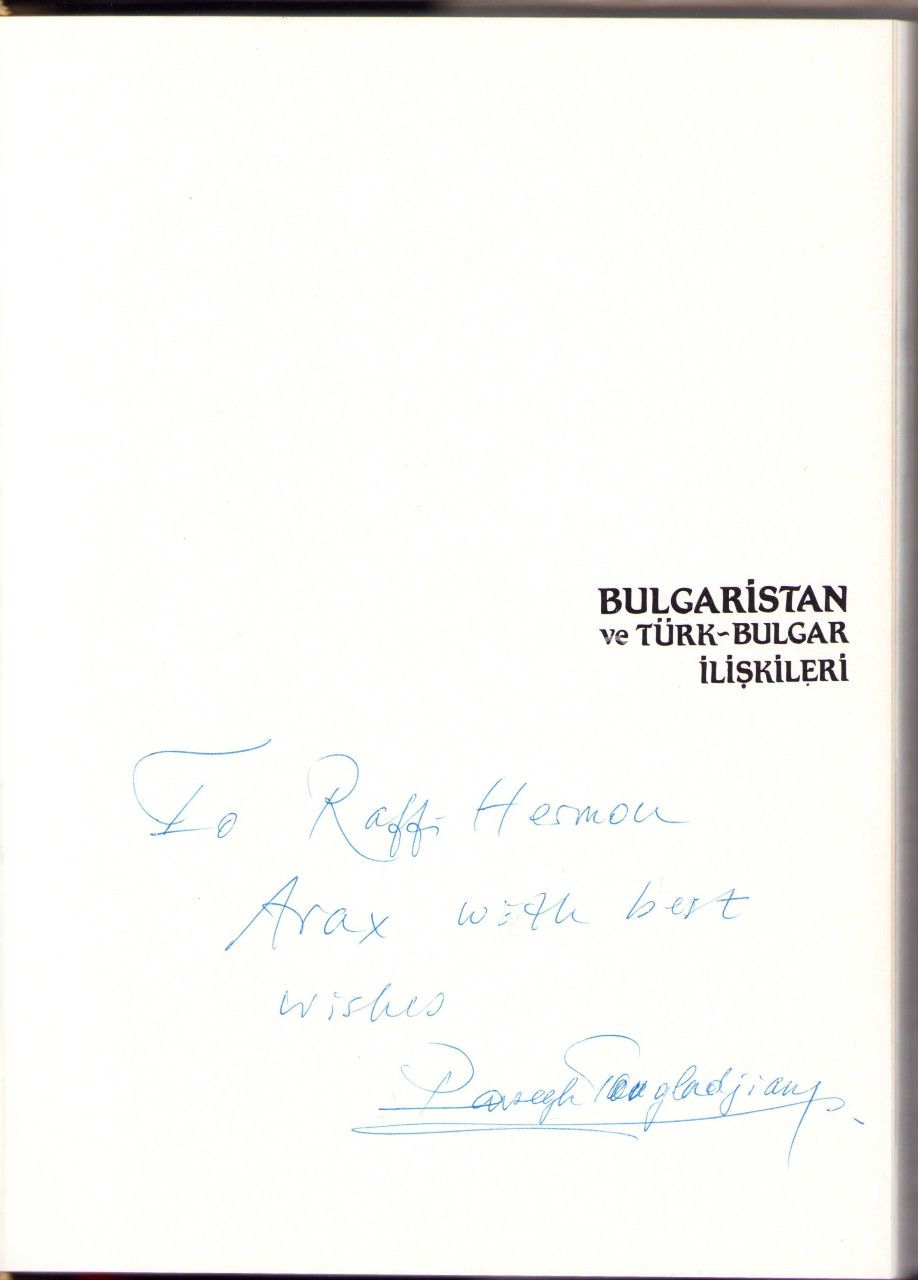 BULGARİSTAN
ve TÜRK-BULGAR
İLİŞKİLERİ
To Raffi Hermon
Arax with best
wishes
Parsegh Tougladjian